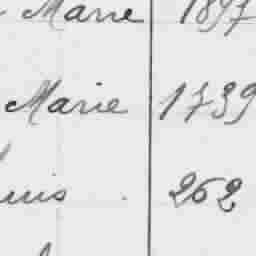 Marie 1897
Marie 1739
uis . 262